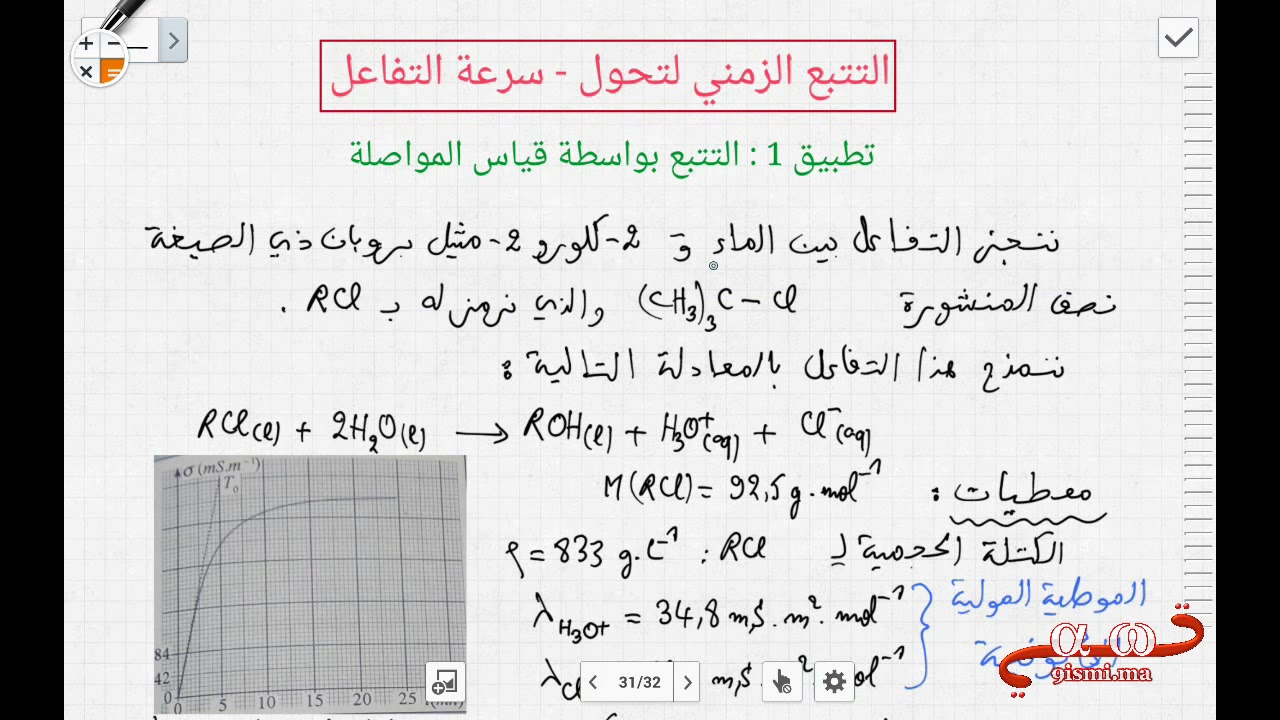 التتبع الزمني لتحول - سرعة التفاعل
تطبيق 1 : التتبع بواسطة قياس المواصلة
ننجز التفاعل بين الماء و 2-كلورو 2-مثيل بروبان ذي الصيغة
نصف المنشورة (CH₃)₃C – Cl والذي نرمز له بـ RCl .
ننمذج هذا التفاعل بالمعادلة التالية :
RCl(l) + 2H₂O(l) → ROH(l) + H₃O⁺(aq) + Cl⁻(aq)
معطيات : M(RCl) = 92,5 g.mol⁻¹
الكتلة الحجمية لـ RCl : ρ = 833 g.L⁻¹
الموصلية المولية
λH₃O⁺ = 34,8 mS.m².mol⁻¹
λCl mS.m².mol⁻¹
σ (mS.m⁻¹)
T₀
84
42
0
0 5 10 15 20 25 t(mn)
31/32
α ω
gismi.ma